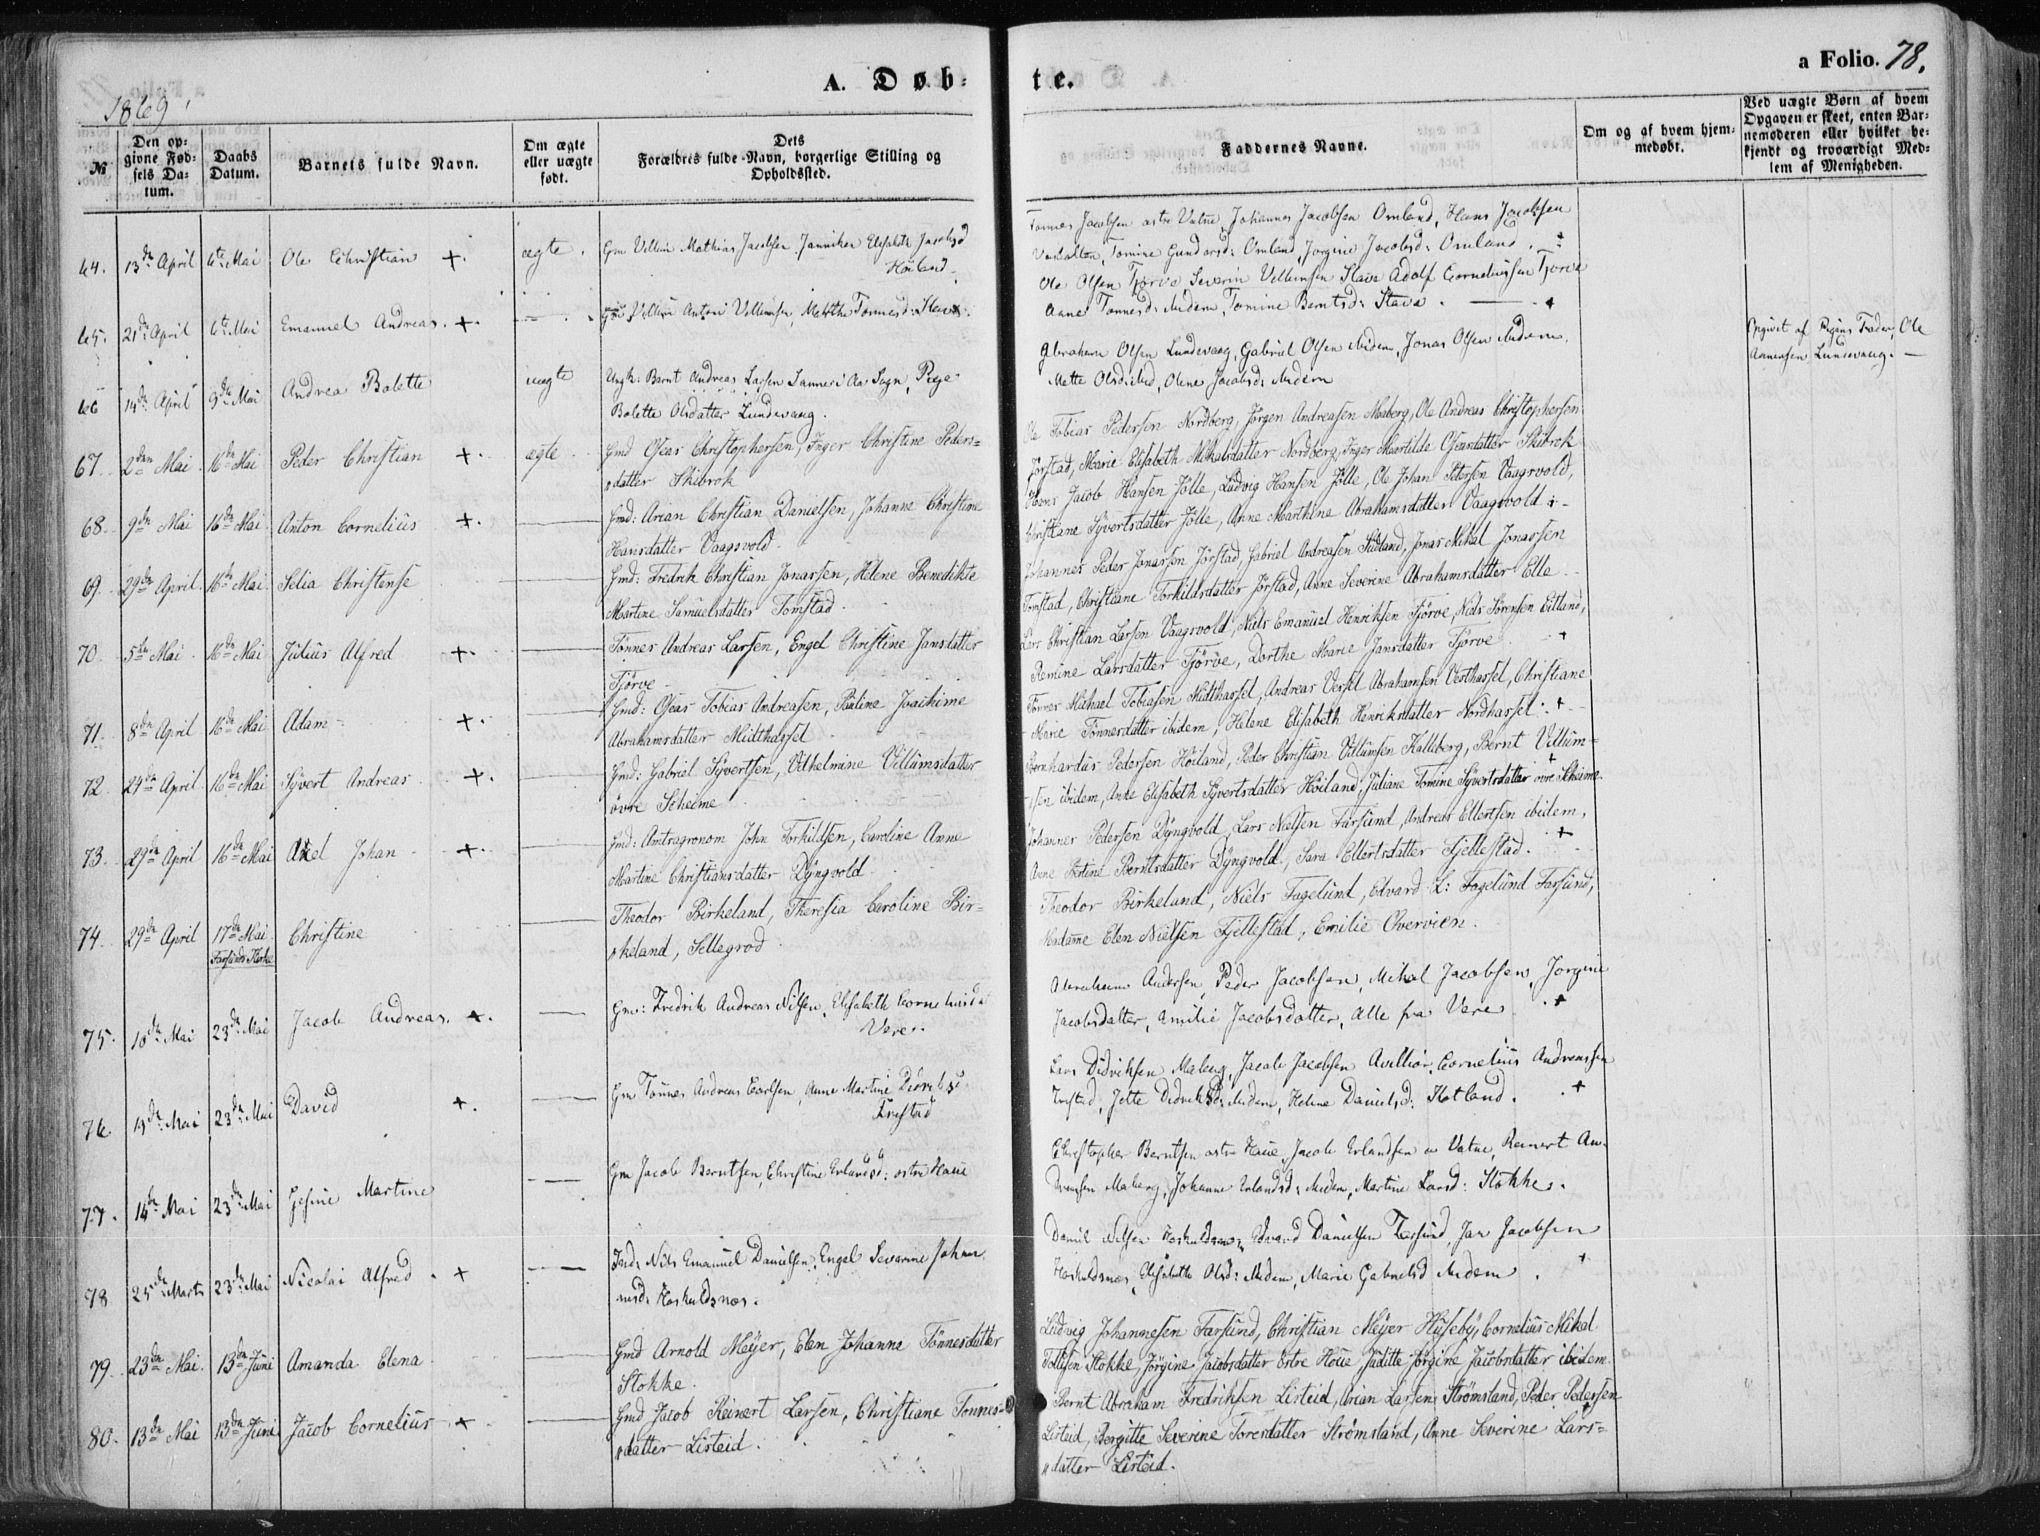 A. Døb-
te.
a Folio. 78.
1869
№
Den opgivne Fødsels Datum.
Daabs Datum.
Barnets fulde Navn.
Om ægte eller uægte født.
Dets Forældres fulde Navn, borgerlige Stilling og Opholdssted.
Faddernes Navne.
Om og af hvem hjemmedøbt.
Ved uægte Børn af hvem Opgaven er skeet, enten Barnemoderen eller hvilket bekjendt og troværdigt Medlem af Menigheden.
64. 13de April 6te Mai Ole Christian + ægte. Gm Villum Mathias Jacobsen, Elisabeth Jacobsd
Høiland
Tønnes Jacobsen østre Vatne, Johannes Jacobsen Omland, Hans Jacobsen
Tomine Gundersd: Omland, Jorgine Jacobsd: Omland
65. 21de April 6te Mai Emanuel Andreas + — Anton Villumsen, Tønnesd:
Ole Olsen Tjørve, Severin Villumsen Stave Adolf Corneliussen Tjørve
Anne Tønnesd: ibidem, Tomine Berntsd: Stave +
66 14de April 9de Mai Andrea Bolette uægte Ungk: Bernt Andreas Larsen i Aa Sogn, Pige
Bolette Olsdatter Lundevaag.
Abraham Olsen Lundevaag, Gabriel Olsen ibidem, Jonas Olsen ibidem
Mette Olsd: ibid, Olene Jacobsd: ibidem
Opgivet af Pigens Fader, Ole
Lundevaag. —
67. 2den Mai 16de Mai Peder Christian + ægte Gmd Osear Christophersen, Inger Christine Peders-
datter Skibrok
Ole Tobias Pedersen Nordberg, Jørgen Andreasen Maberg, Ole Andreas Christophersen
Jørstad, Marie Elisabeth Mikalsdatter Nordberg, Inger Martilde Osearsdatter Skibrok
68. 9de Mai 16de Mai Anton Cornelius + — Gmd: Arian Christian Danielsen, Johanne Christine
Hansdatter Vaagsvold
Hans Jacob Hansen Jølle, Ludvig Hansen Jølle, Ole Johan Petersen Vaagsvold,
Christiane Syvertsdatter Jølle, Anne Marthine Abrahamsdatter Vaagsvold +
69. 29de April 16de Mai Selia Christense — Gmd: Fredrik Christian Jonassen, Helene Benedikte
Martine Samuelsdatter Tomstad
Johannes Peder Jonassen Jørstad, Gabriel Andreasen Sudland, Jonas Mikal Jonassen
Tomstad, Christiane Torkildsdatter Jørstad, Anne Severine Abrahamsdatter Elle
70. 5te Mai 16de Mai Julius Alfred + — Tønnes Andreas Larsen, Engel Christine Jansdatter
Tjørve
Lars Christian Larsen Vaagsvold, Niels Emanuel Henriksen Tjørve, Niels Sørensen Eitland,
Remine Larsdatter Tjørve, Dorthe Marie Jansdatter Tjørve +
71. 8de April 16de Mai Adam + — Gmd: Osear Tobias Andreasen, Paline Joachime
Abrahamsdatter Midthassel
Tønnes Mikael Tobiasen Midthassel, Andreas Versel Abrahamsen Vesthassel, Christiane
Marie Tønnesdatter ibidem, Helene Elisabeth Henriksdatter Nordhassel +
72. 24de April 16de Mai Syvert Andreas + — Gmd: Gabriel Syvertsen, Vilhelmine Villumsdatter
øvre Scheime
Bernhardus Pedersen Høiland, Peder Christian Villumsen Kalleberg, Bernt Villum-
sen ibidem, Ane Elisabeth Syvertsdatter Høiland, Juliane Tomine Syvertsdatter øvre Scheime +
73. 29de April 16de Mai Axel Johan + — Gmd: Amtsagronom John Torkildsen, Caroline Anne
Martine Christiansdatter Dyngvold
Johannes Pedersen Dyngvold, Lars Nielsen Farsund, Andreas Ellertsen ibidem,
Anne Bertine Berntsdatter Dyngvold, Sara Ellertsdatter Fjellestad. +
74. 29de April 17de Mai Farsunds Kirke Christine — Theodor Birkeland, Theresia Caroline Bir-
keland, Sellegrod
Theodor Birkeland, Niels Fagelund, Edvard L: Fagelund Farsund,
Madame Elen Nielsen Fjellestad, Emilie Overvien.
75. 10de Mai 23de Mai Jacob Andreas. + — Gm: Fredrik Andreas Nilsen, Elisabeth Corneliusd
Vere.
Abraham Andersen, Peder Jacobsen, Mikal Jacobsen, Jorgine
Jacobsdatter, Amilie Jacobsdatter, Alle fra Vere +
76. 19de Mai 23de Mai David +. — Gm Tønnes Andreas Carlsen, Anne Martine Didriksd
Frestad
Lars Didriksen Maberg, Jacob Jacobsen, Cornelius Andreassen
Frestad, Jette Didriksd: ibidem, Helene Danielsd: Hotland. +
77. 14de Mai 23de Mai Gesine Martine — Gm Jacob Berntsen, Christine Erlandsd: østre Haue
Christopher Berntsen østre Haue, Jacob Erlandsen Vatne, Reinert An-
dreasen Maberg, Johanne Erlandsd: ibidem, Martine Larsd: Stokke.
78 25de Marts 23de Mai Nicolai Alfred + — Inds. Nils Emanuel Danielsen, Engel Severine Johan
nesd: Hoskuldsnes.
Daniel Nilsen Hoskuldsnes, Edvard Danielsen Farsund, Jan Jacobsen
Hoskuldsnes, Elisabeth Olsd: ibidem, Marie Gabrielsd ibidem. +
79. 23de Mai. 13de Juni Amanda Elena — Gmd Arnold Meyer, Elen Johanne Tønnesdatter
Stokke.
Ludvig Johannesen Farsund, Christian Meyer Huseby, Cornelius Mikal
Tollisen Stokke, Jørgine Jacobsdatter østre Haue Juditte Jørgine Jacobsdatter ibidem.
80. 13de Mai 13de Juni Jacob Cornelius + — Gmd Jacob Reinert Larsen, Christiane Tønnes-
datter Listeid.
Bernt Abraham Fredriksen Listeid, Arian Larsen Strømsland, Peder Pedersen
Listeid, Bergitte Severine Toresdatter Strømsland, Anne Severine Lars-
datter Listeid.